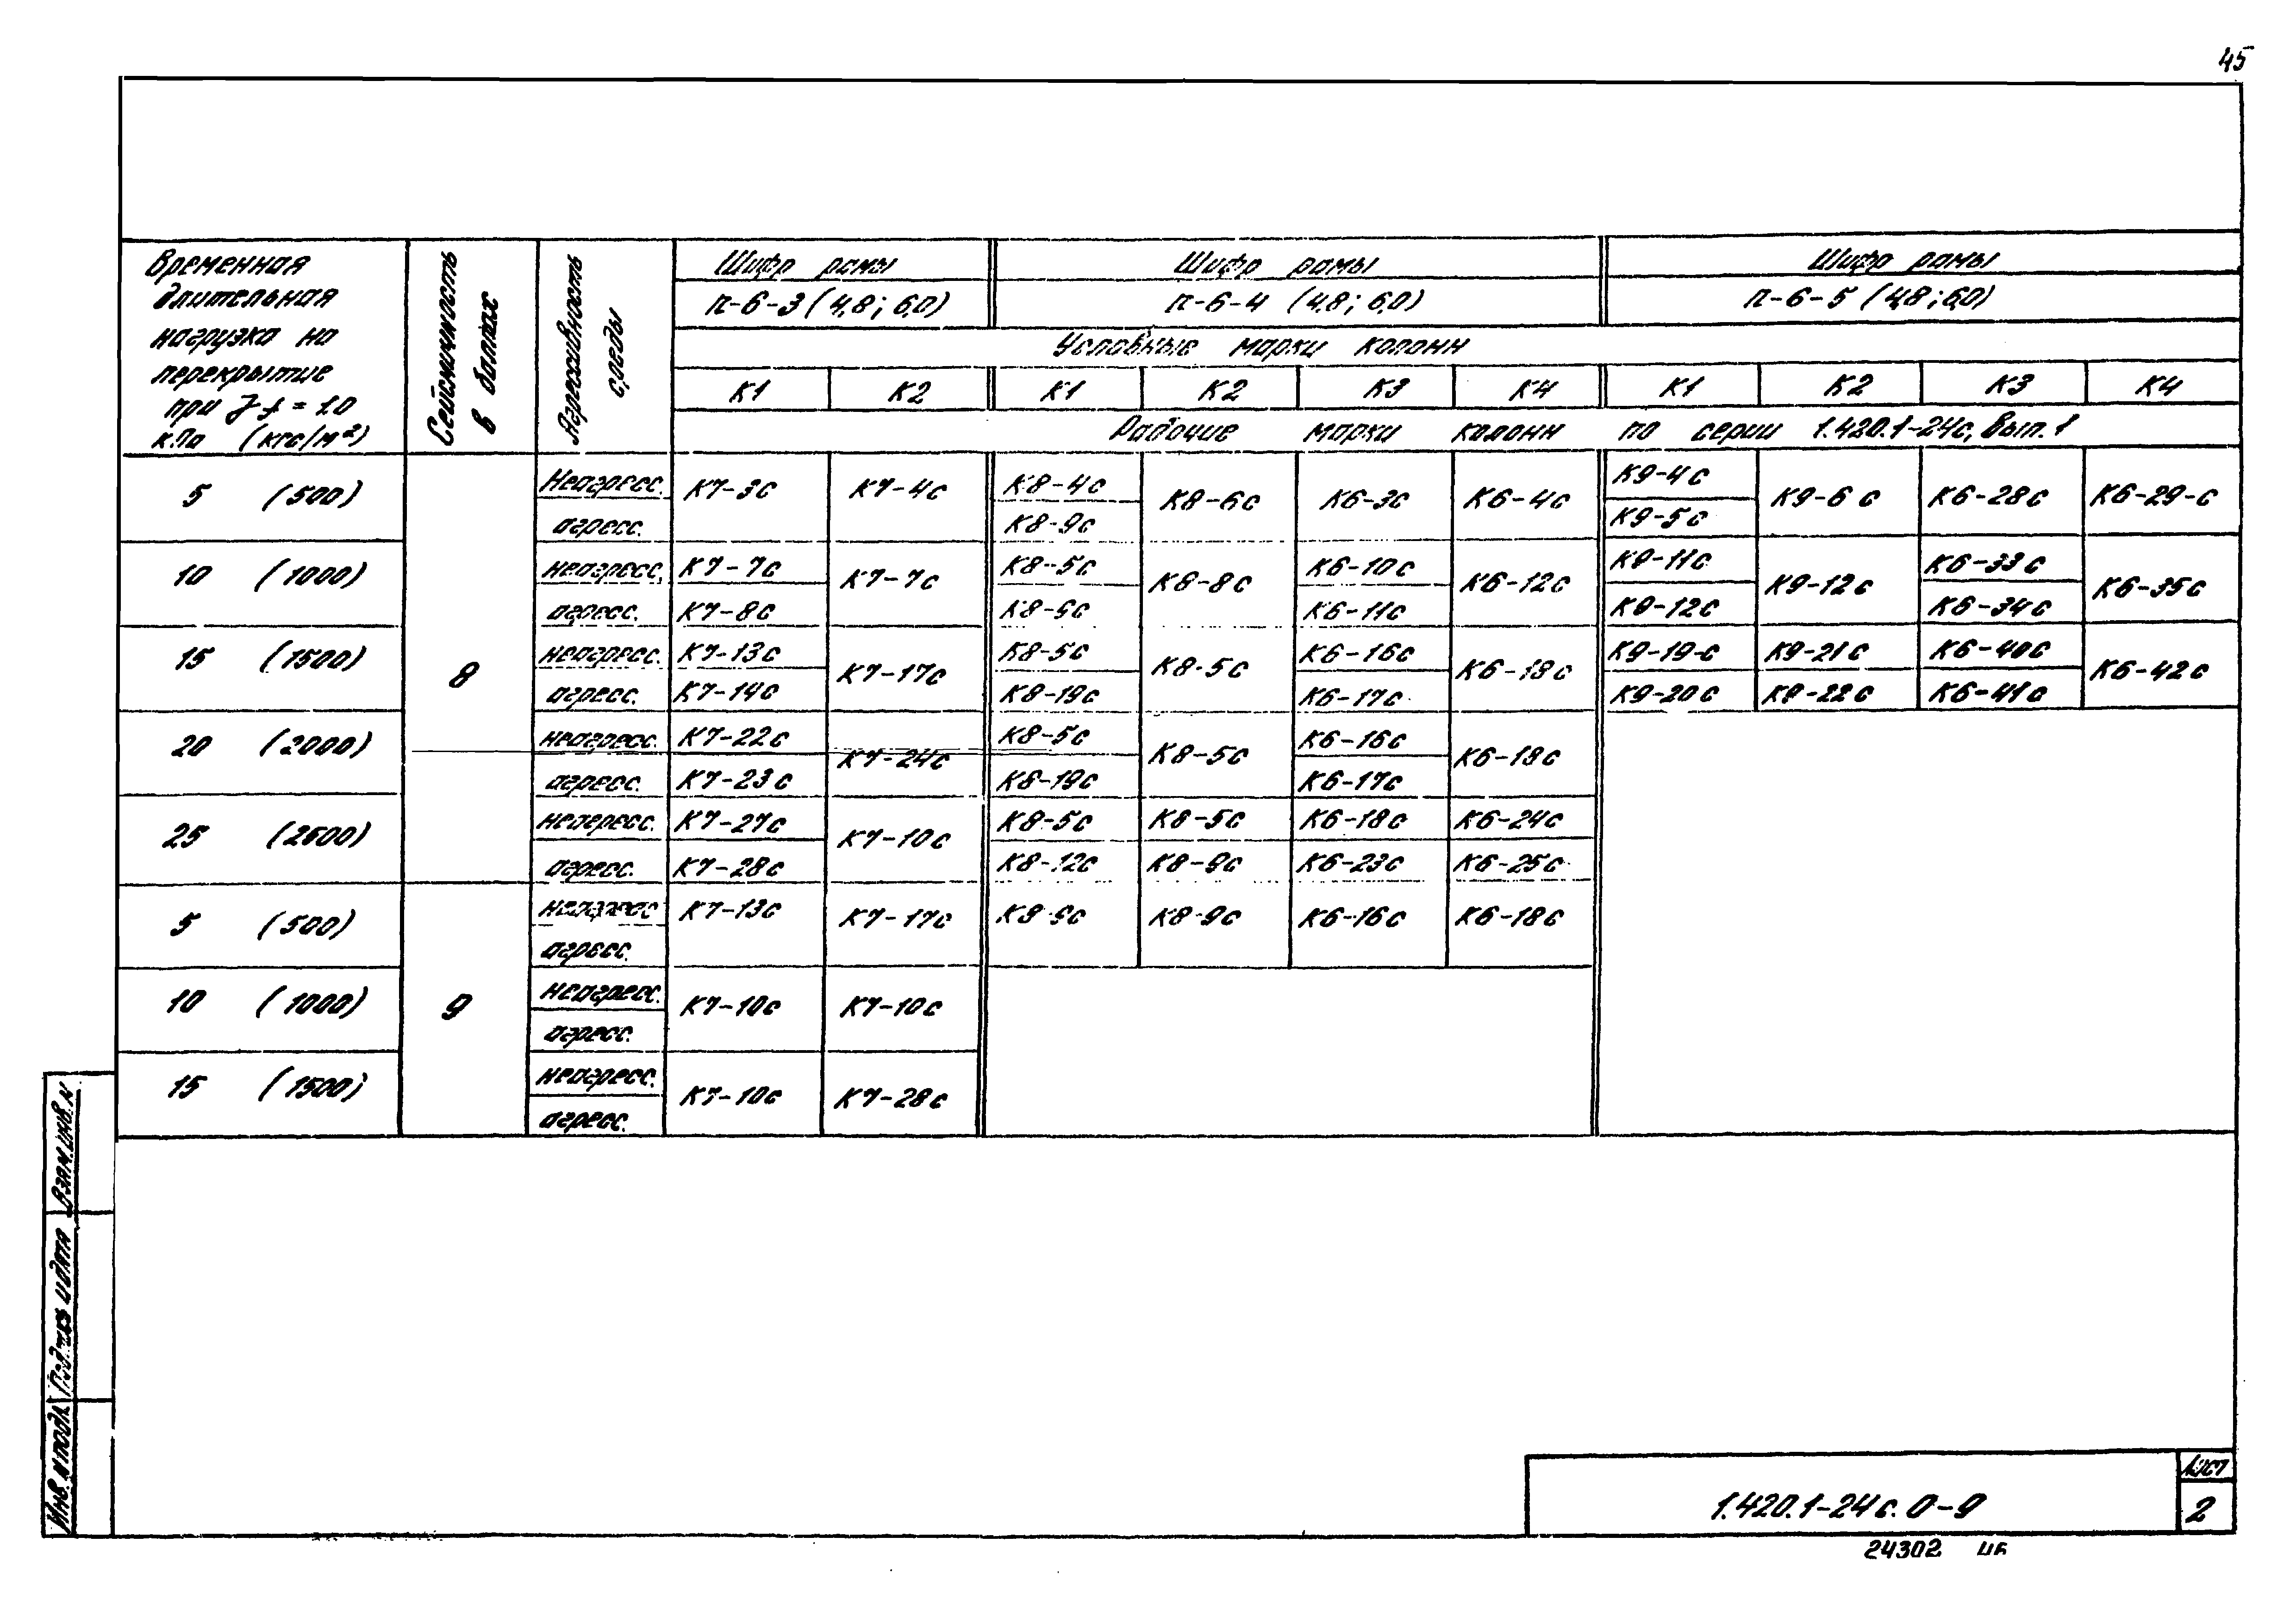 45
Временная длительная нагрузка на перекрытие при γf = 1.0 кПа (кгс/м²)
Сейсмичность в баллах
Агрессивность среды
Шифр рамы Шифр рамы Шифр рамы
п-6-3 (4,8; 6,0) п-6-4 (4,8; 6,0) п-6-5 (4,8; 6,0)
Условные марки колонн
К1 К2 К1 К2 К3 К4 К1 К2 К3 К4
Рабочие марки колонн по серии 1.420.1-24с, вып. 1
5 (500) 8 Неагресс. К7-3с К7-4с К8-4с К8-6с К6-3с К6-4с К9-4с К9-6с К6-28с К6-29-с
агресс. К8-9с К9-5с
10 (1000) неагресс. К7-7с К7-7с К8-5с К8-8с К6-10с К6-12с К9-11с К9-12с К6-33с К6-35с
агресс. К7-8с К6-11с К9-12с К6-34с
15 (1500) неагресс. К7-13с К7-17с К8-5с К8-5с К6-16с К6-18с К9-19-с К9-21с К6-40с К6-42с
агресс. К7-14с К8-19с К6-17с К9-20с К9-22с К6-41с
20 (2000) неагресс. К7-22с К7-24с К8-5с К8-5с К6-16с К6-18с
агресс. К7-23с К8-19с К6-17с
25 (2500) неагресс. К7-27с К7-10с К8-5с К8-5с К6-18с К6-24с
агресс. К7-28с К8-12с К8-9с К6-23с К6-25с
5 (500) 9 неагресс. К7-13с К7-17с К8-9с К8-9с К6-16с К6-18с
агресс.
10 (1000) неагресс. К7-10с К7-10с
агресс.
15 (1500) неагресс. К7-10с К7-28с
агресс.
Взам. инв. N
Подпись и дата
Инв. N подл.
1.420.1-24с. 0-9
Лист
2
24302 46